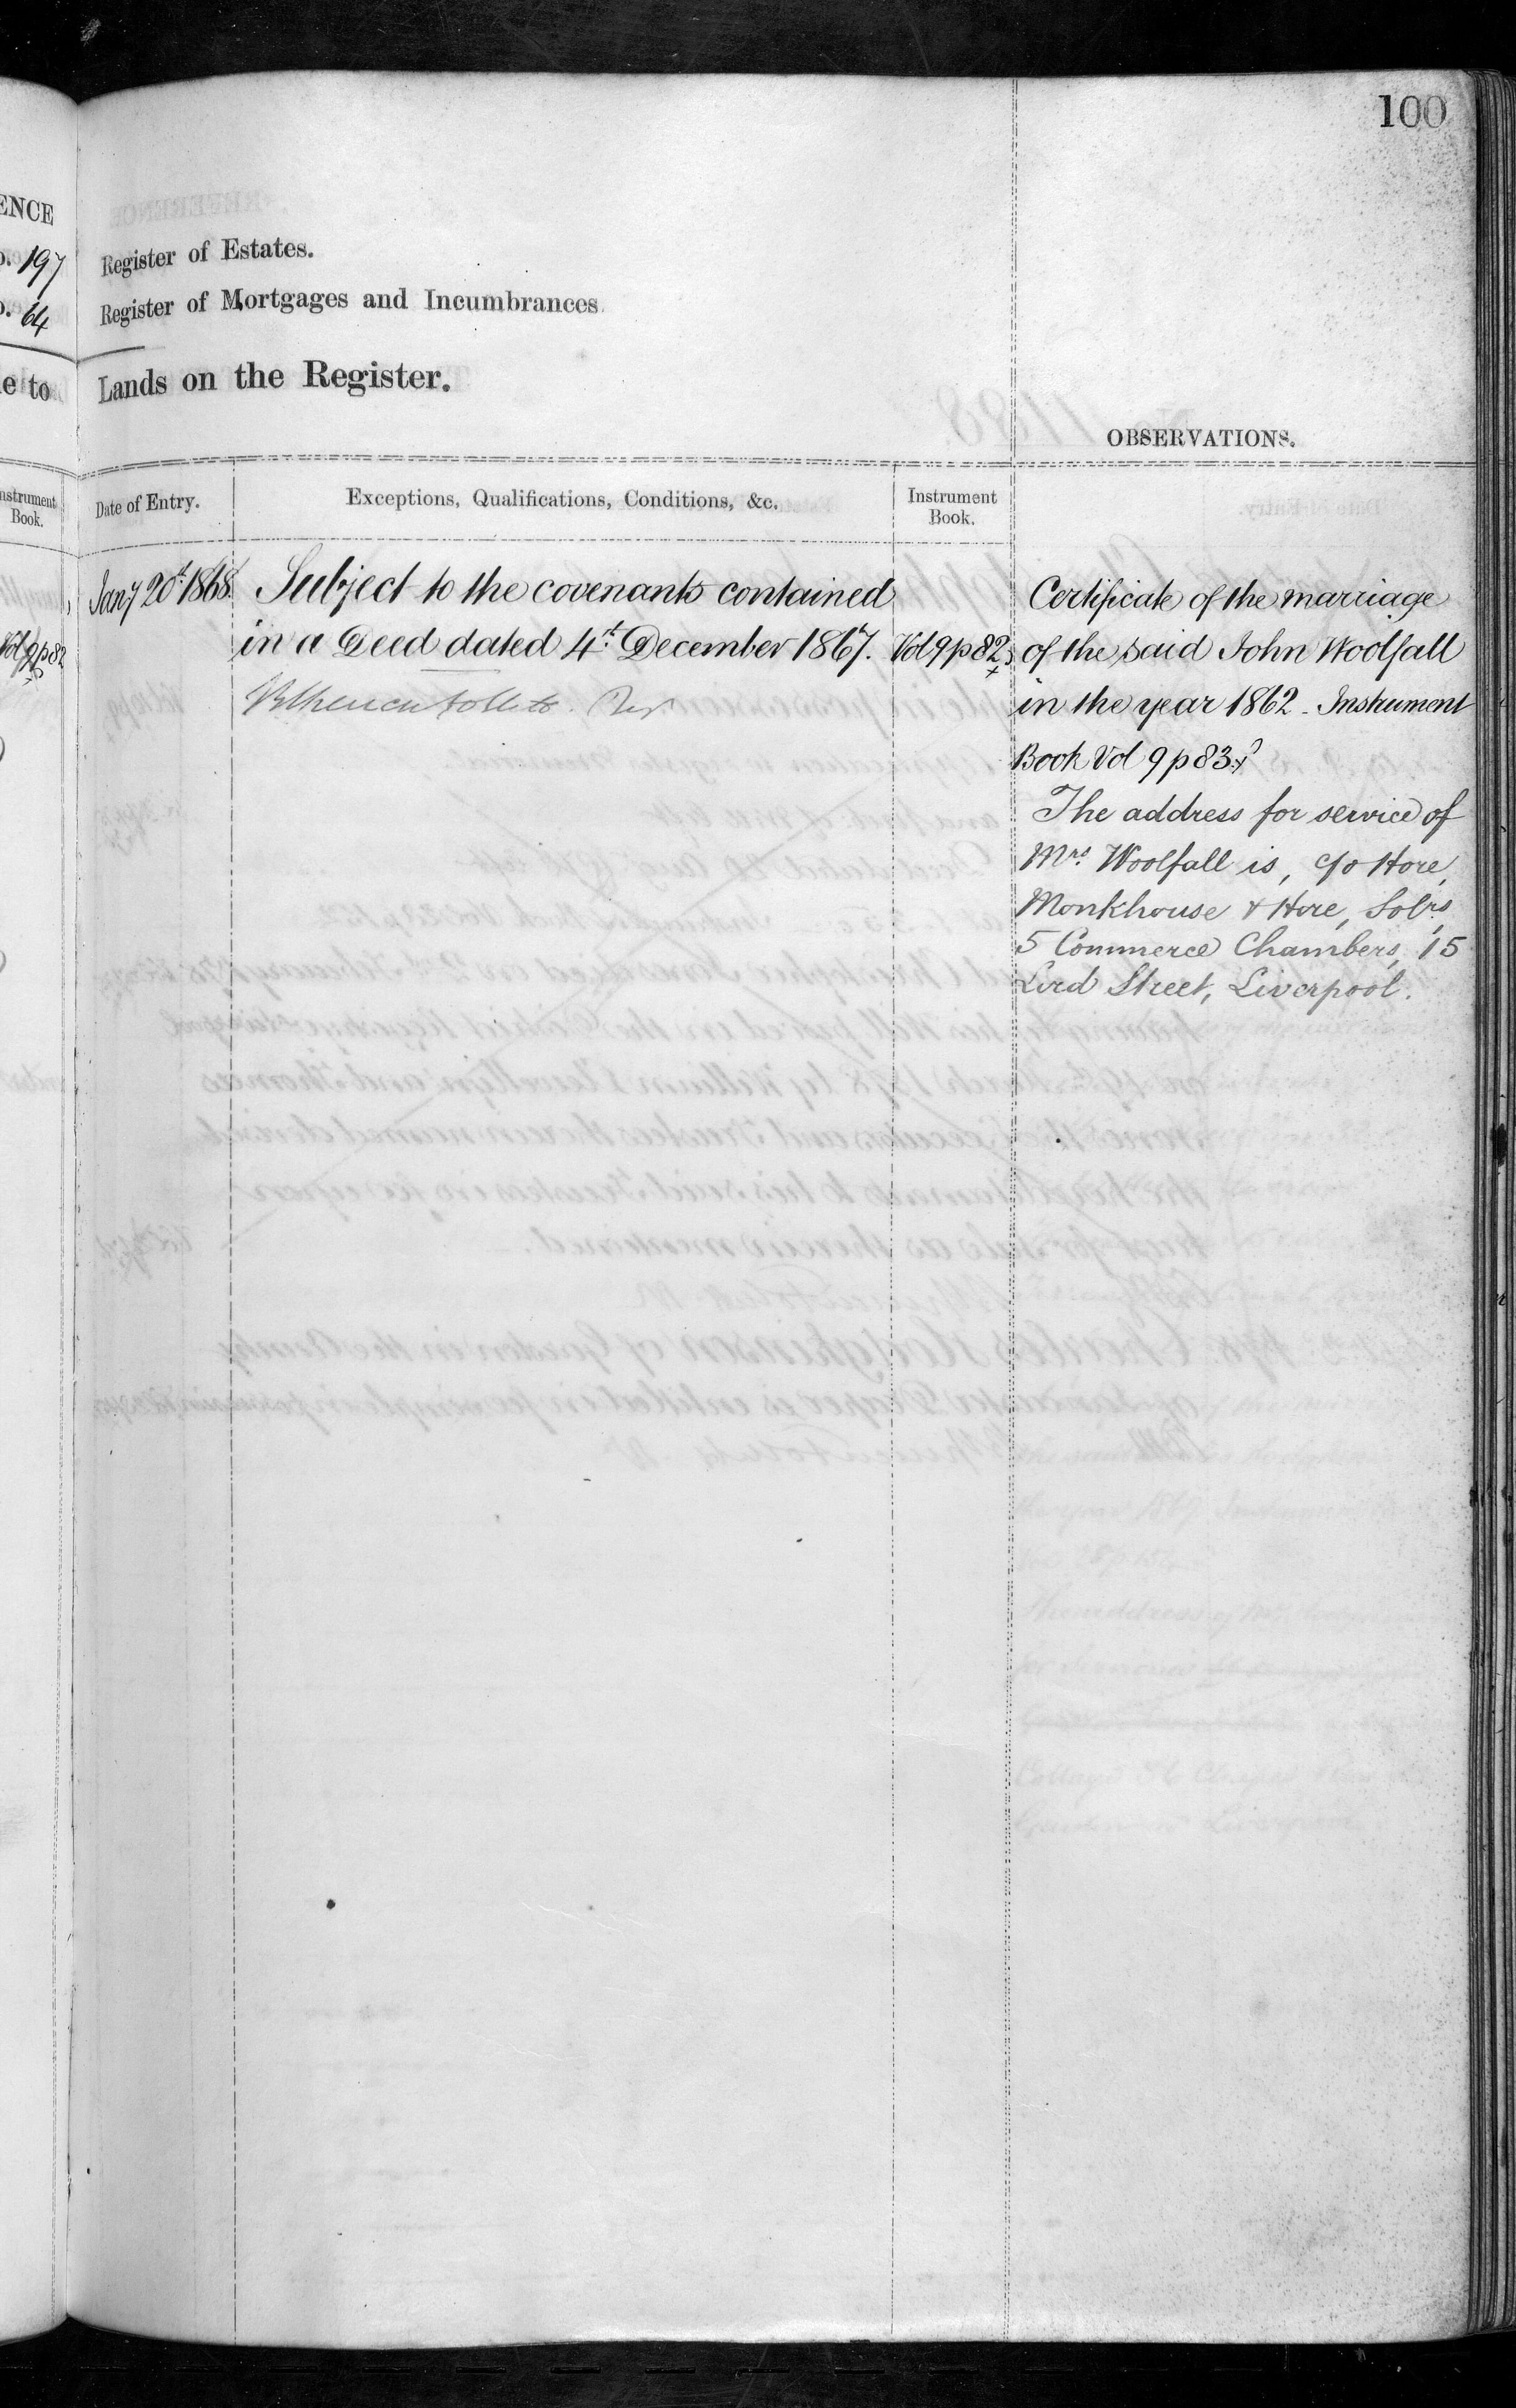 100
ENCE
197
64
e to
Register of Estates.
Register of Mortgages and Incumbrances.
Lands on the Register.
OBSERVATIONS.
Instrument
Book.
Date of Entry.
Exceptions, Qualifications, Conditions, &c.
Instrument
Book.
Jany 20th 1868.
Subject to the covenants contained
in a Deed dated 4th December 1867.
Vol 9 p 82
Vol 9 p 82
Certificate of the marriage
of the said John Woolfall
in the year 1862 - Instrument
Book Vol 9 p 83
The address for service of
Mrs. Woolfall is, c/o Hore,
Monkhouse & Hore, Solrs,
5 Commerce Chambers, 15
Lord Street, Liverpool.